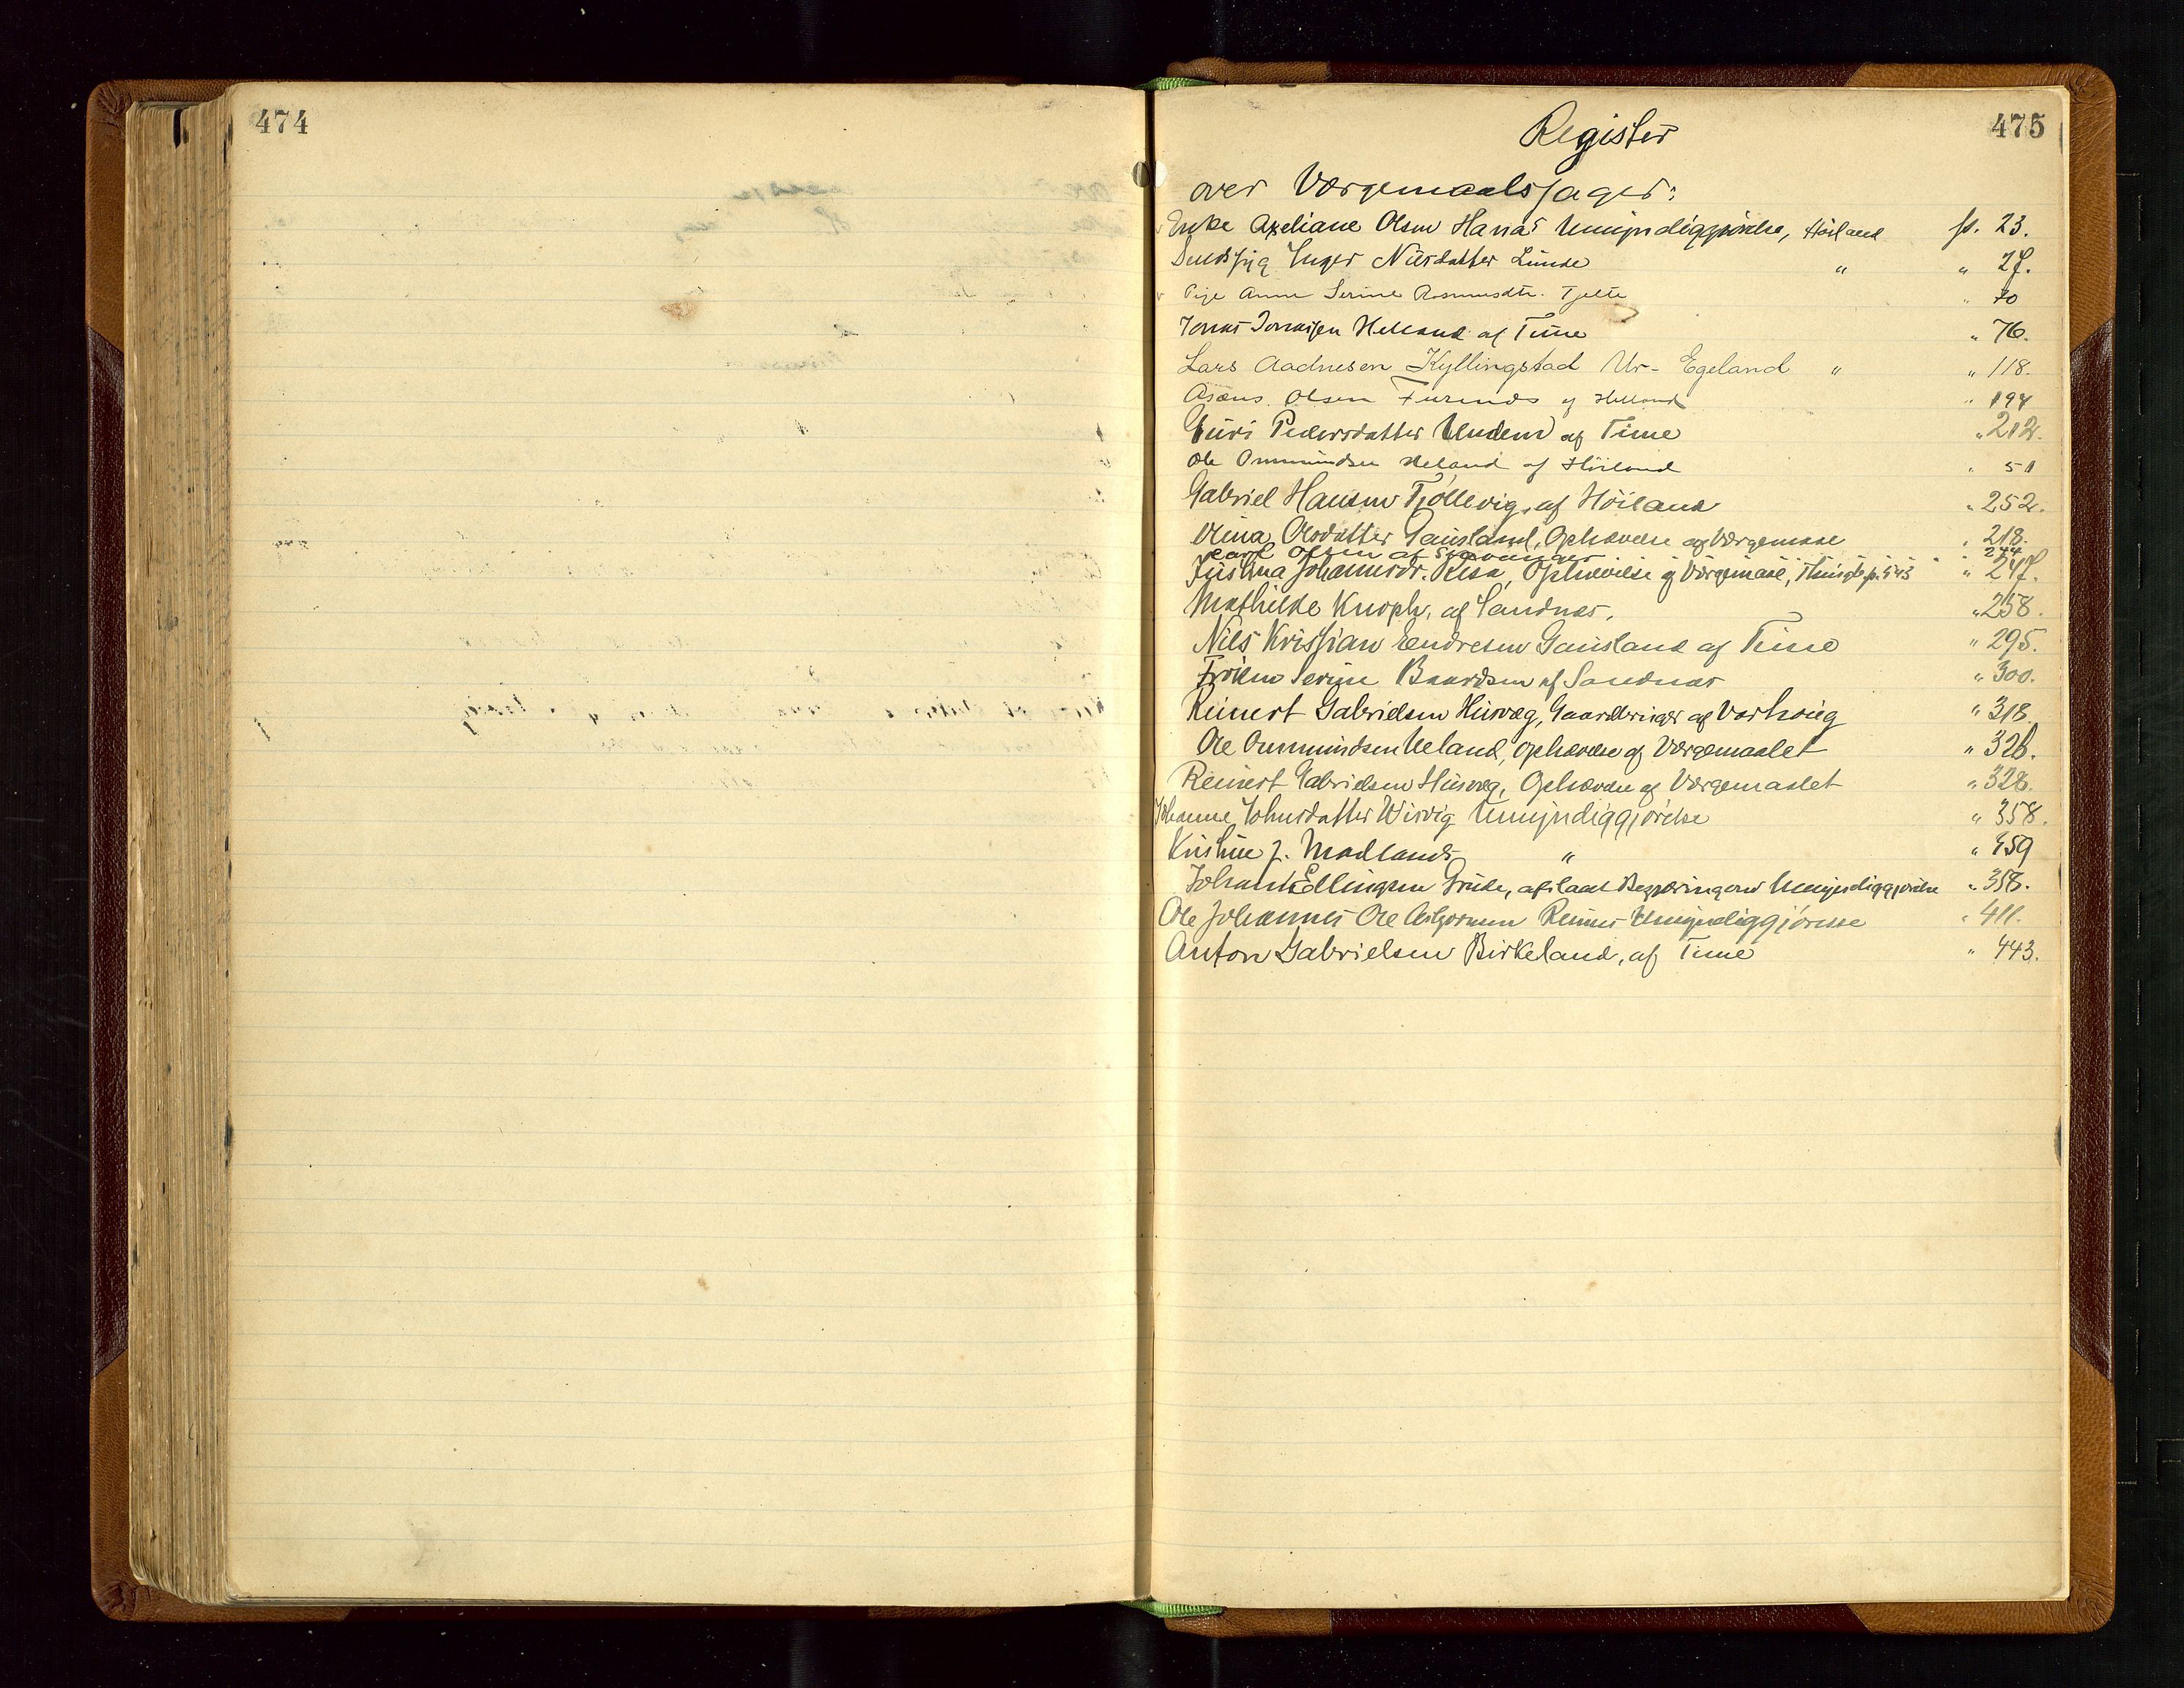 474
475
Register
over Værgemaalssager:
Enke Axeliane Olsen Hanas Umyndiggjørelse, Høiland p. 23.
Sindssyg Inger Nilsdatter Lunde " " 27.
Pige Anne Serine Rasmusdtr. Tjelte " 70
Jonas Jonassen Helland af Time " 76.
Lars Aadnesen Kyllingstad Ur- Egeland " " 118.
Olsen af Helland " 194
Guri Pedersdatter Undem af Time " 212.
Ole Ommundsen Ueland af Höiland " 51
Gabriel Hansen Tjöllevig, af Höiland " 252.
Olina Olsdatter Gausland, Ophævelse af Værgemaal " 218.
Carl Olsen af Stavanger " 244
Justina Johannesdr. Resa, Ophævelse af Værgemaal, Thingb. p. 543 " 247.
Mathilde Knoph, af Sandnæs, " 258.
Nils Kristian Endresen Gausland af Time " 295.
Fröken Serine Baardsen af Sandnæs " 300.
Reinert Gabrielsen Husvæg, Gaardbruger af Varhoug " 318.
Ole Ommundsen Ueland, Ophævelse af Værgemaalet " 326.
Reinert Gabrielsen Husvæg, Ophævelse af Værgemaalet " 328.
Johanne Johnsdatter Wisvig Umyndiggjörelse " 358.
Kristine J. Madlands " " 459
Johan Edlingsen Grude, afslaaet Begjæring om Umyndiggjörelse " 358.
Ole Johannes Ole Asbjörnsen Reimes Umyndiggjörelse " 411.
Anton Gabrielsen Birkeland, af Time " 443.